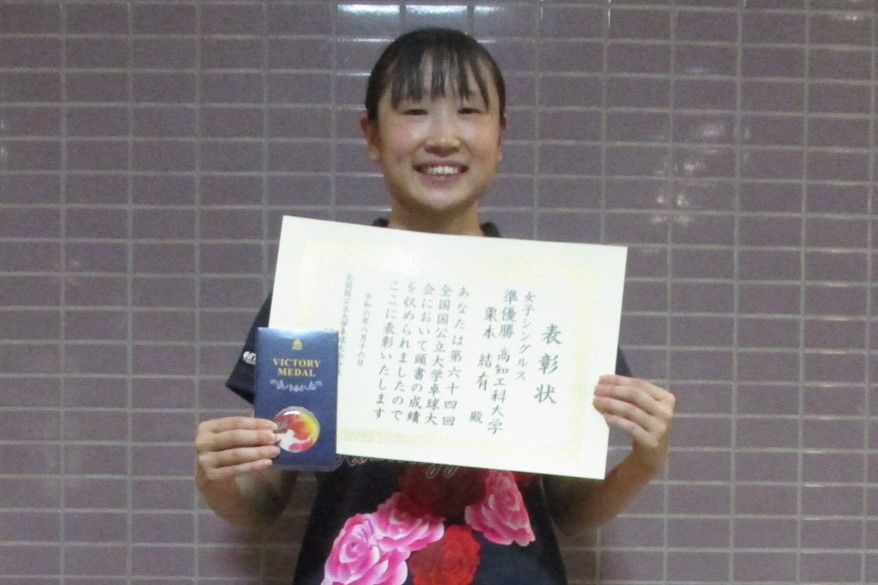 表彰状
女子シングルス
準優勝 高知工科大学
栗本 結有 殿
あなたは第六十四回
全国国公立大学卓球大
会において頭書の成績
を収められましたので
ここに表彰いたします
令和六年八月十六日
全国国公立大学卓球
VICTORY
MEDAL